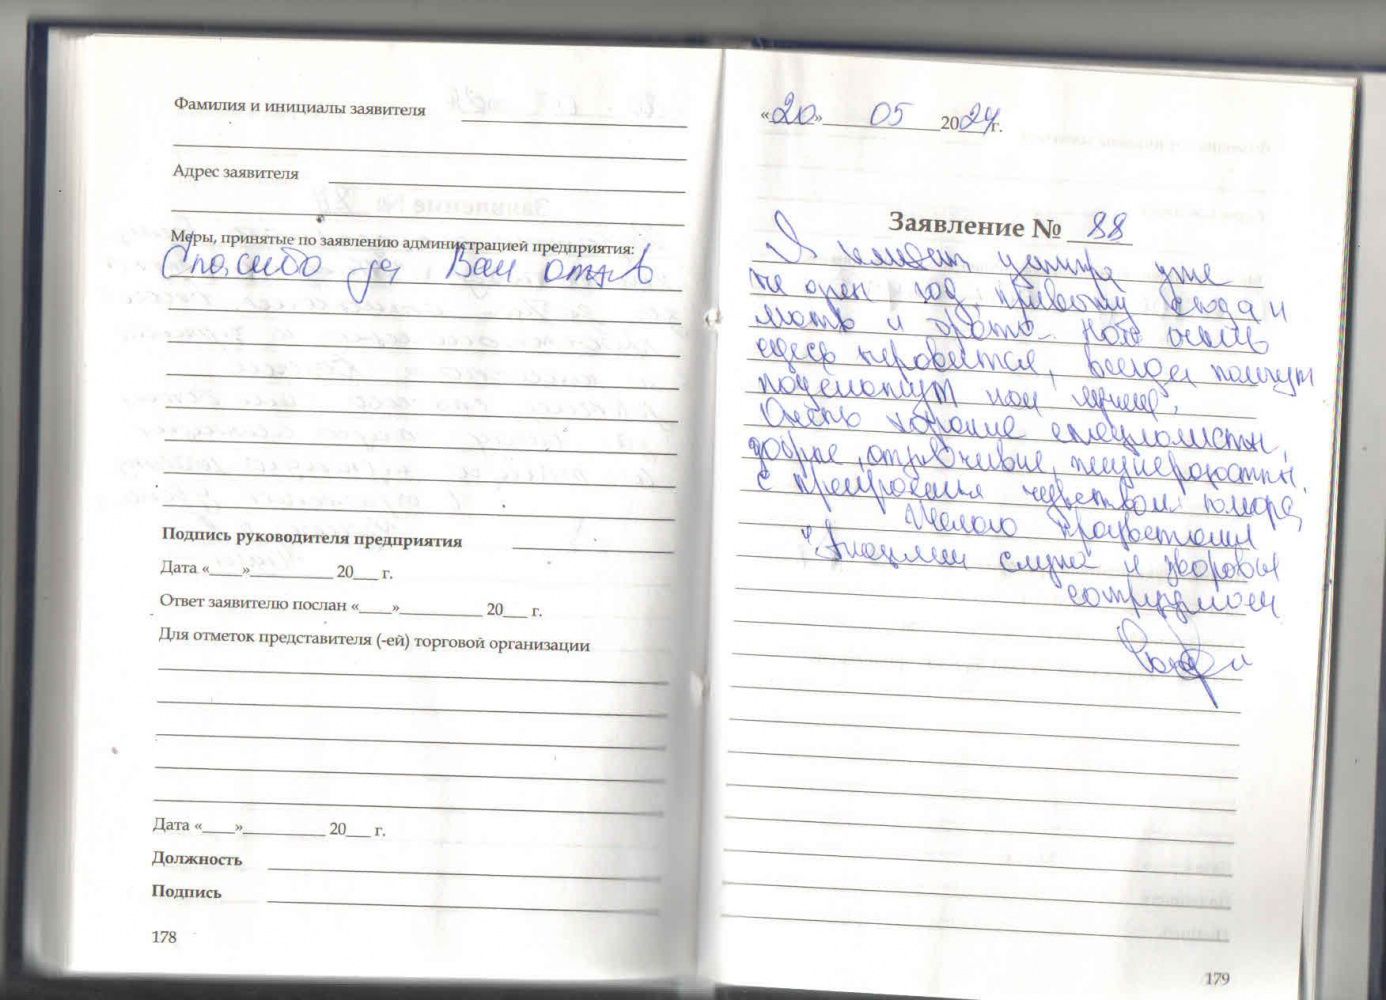 Фамилия и инициалы заявителя
Адрес заявителя
Меры, принятые по заявлению администрацией предприятия:
Спасибо за Ваш отзыв
Подпись руководителя предприятия
Дата «____»__________ 20___ г.
Ответ заявителю послан «____»__________ 20___ г.
Для отметок представителя (-ей) торговой организации
Дата «____»__________ 20___ г.
Должность
Подпись
178
«20» 05 2024 г.
Заявление № 88
Я клиент центра уже
не один год, привожу сюда и
мать и брата. Нам очень
здесь нравится, всегда помогут
подскажут как лучше.
Очень хорошие специалисты,
добрые, отзывчивые,
с прекрасным чувством юмора,
Желаю процветания
"Академии слуха" и здоровья
сотрудникам
179